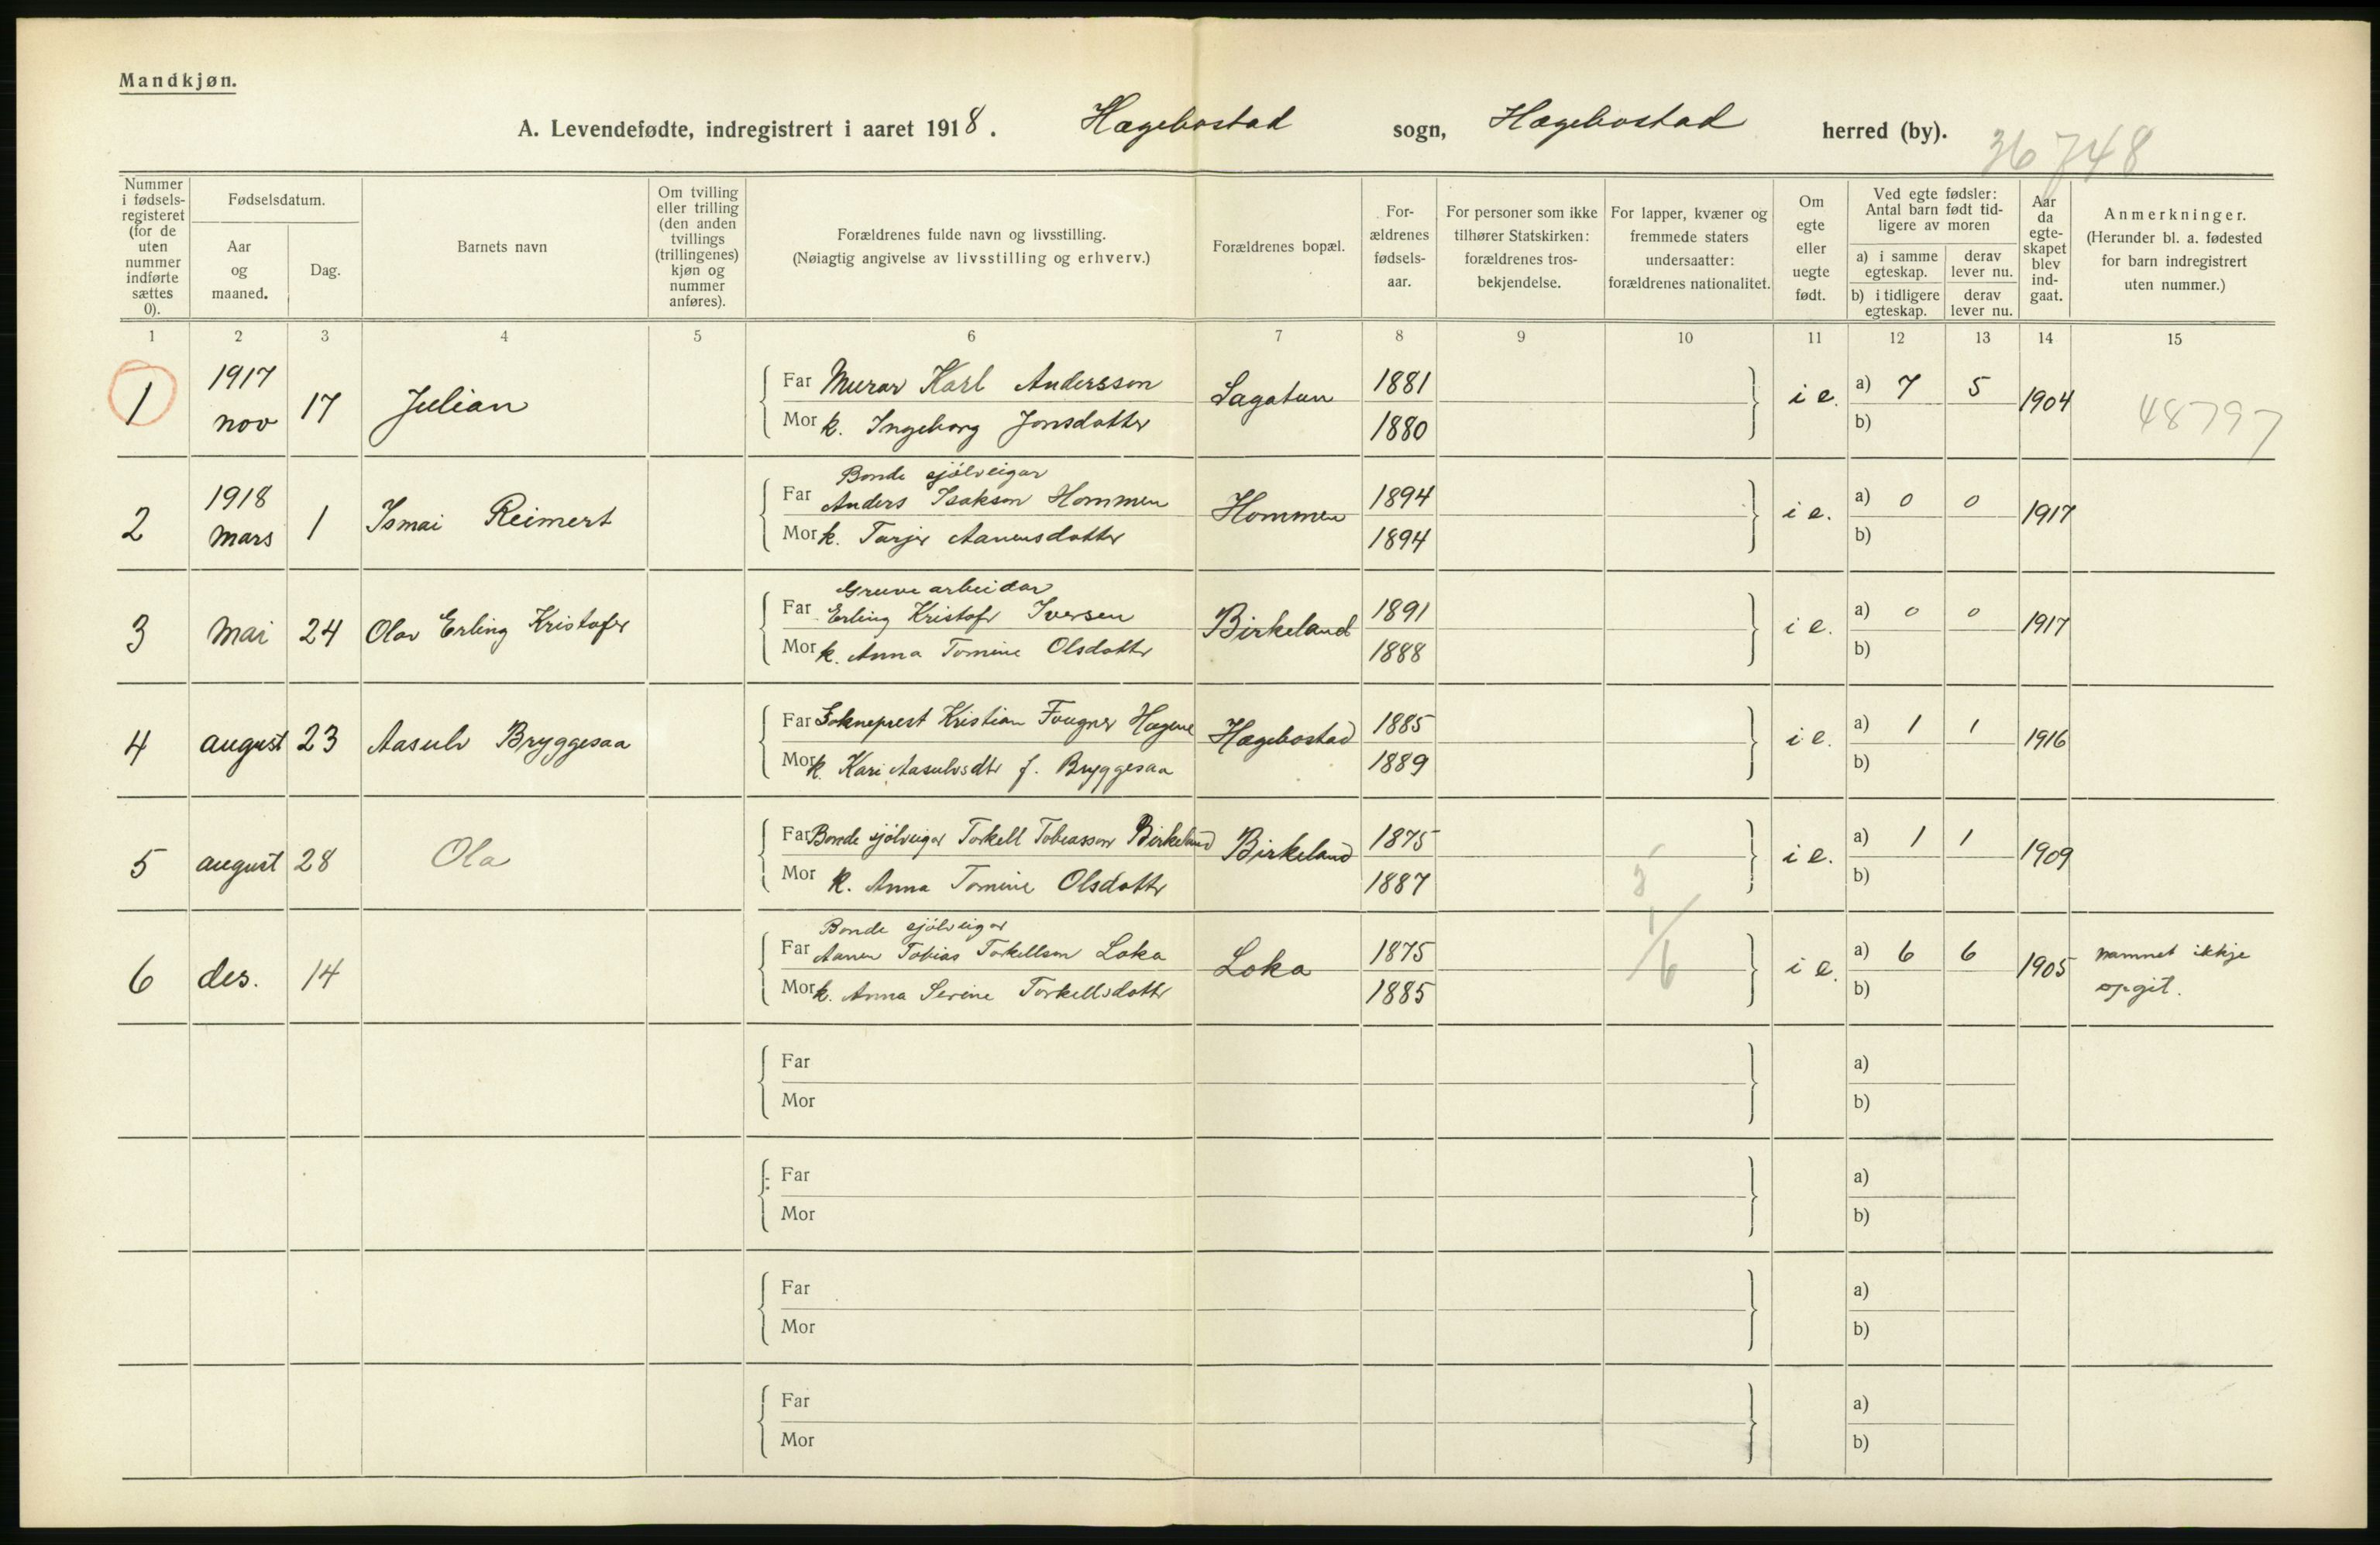 Mandkjøn.
A. Levendefødte, indregistrert i aaret 1918. Hægebostad sogn, Hægebostad herred (by).
36748
Nummer i fødsels-registeret (for de uten nummer indførte sættes 0).
Fødselsdatum.
Aar og maaned.
Dag.
Barnets navn
Om tvilling eller trilling (den anden tvillings (trillingenes) kjøn og nummer anføres).
Forældrenes fulde navn og livsstilling.
(Nøiagtig angivelse av livsstilling og erhverv.)
Forældrenes bopæl.
For-ældrenes fødsels-aar.
For personer som ikke tilhører Statskirken: forældrenes tros-bekjendelse.
For lapper, kvæner og fremmede staters undersaatter: forældrenes nationalitet.
Om egte eller uegte født.
Ved egte fødsler: Antal barn født tid-ligere av moren
a) i samme egteskap.
derav lever nu.
b) i tidligere egteskap.
derav lever nu.
Aar da egte-skapet blev ind-gaat.
Anmerkninger.
(Herunder bl. a. fødested for barn indregistrert uten nummer.)
1 2 3 4 5 6 7 8 9 10 11 12 13 14 15
1 1917 nov 17 Julian
Far Murar Karl Andersson Sagatun 1881 i e. a) 7 5 1904 48797
Mor k. Ingeborg Jonsdotter 1880 b)
Bonde sjölveigar
2 1918 mars 1 Ismai Reimert
Far Anders Isakson Hommen Hommen 1894 i e. a) 0 0 1917
Mor k. Tarjer Aanensdotter 1894 b)
Gruvearbeidar
3 mai 24 Olav Erling Kristofer
Far Erling Kristofr Iversen Birkeland 1891 i e. a) 0 0 1917
Mor k. Anna Tomine Olsdottr 1888 b)
4 august 23 Aasulv Bryggesaa
Far Sokneprest Kristian Fougner Hagene Hægebostad 1885 i e. a) 1 1 1916
Mor k. Kari Aasulvsdtr f. Bryggesaa 1889 b)
5 august 28 Ola
Far Bonde sjölveigar Torkell Tobeasson Birkeland Birkeland 1875 i e. a) 1 1 1909
Mor k. Anna Tomine Olsdottr 1887 b)
Bonde sjölveigar
6 des. 14
Far Aanen Tobias Torkellson Loka Loka 1875 i e. a) 6 6 1905 namnet ikkje
Mor k. Anna Serine Torkellsdottr 1885 b) opgit.
6
Far a)
Mor b)
Far a)
Mor b)
Far a)
Mor b)
Far a)
Mor b)